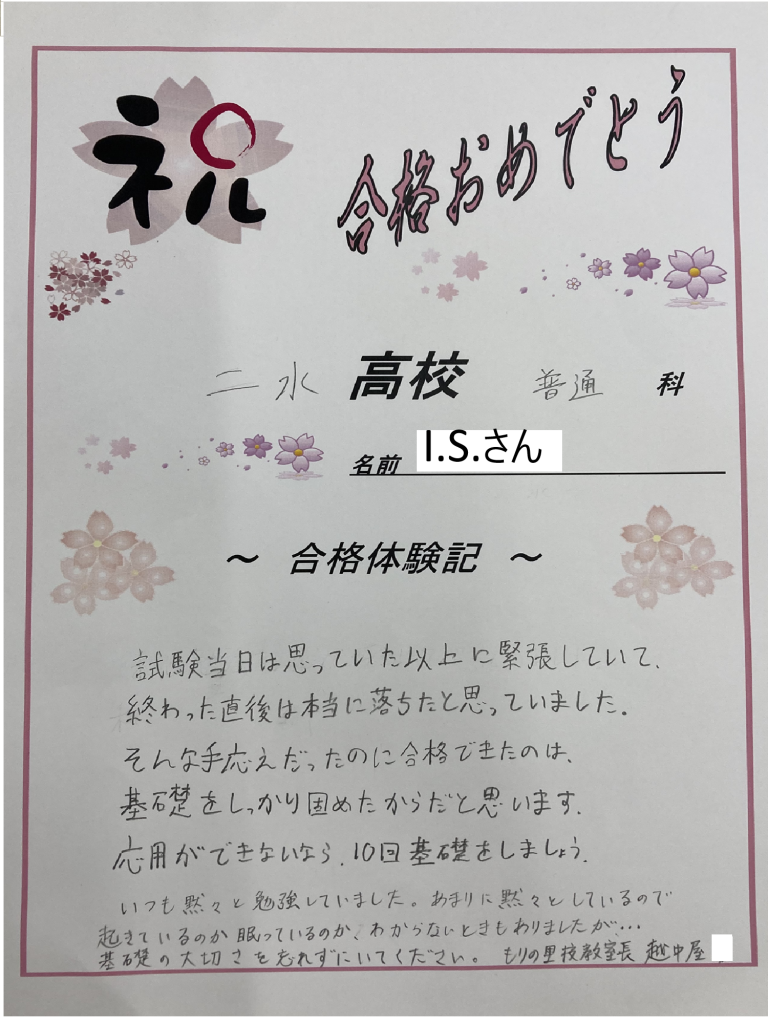 祝
合格おめでとう
二水 高校 普通 科
名前 I.S.さん
～ 合格体験記 ～
試験当日は思っていた以上に緊張していて、
終わった直後は本当に落ちたと思っていました。
そんな手応えだったのに合格できたのは、
基礎をしっかり固めたからだと思います。
応用ができないなら、10回基礎をしましょう。
いつも黙々と勉強していました。あまりに黙々としているので
起きているのか眠っているのか、わからないときもありましたが…
基礎の大切さを忘れずにいてください。 もりの里校教室長 越中屋